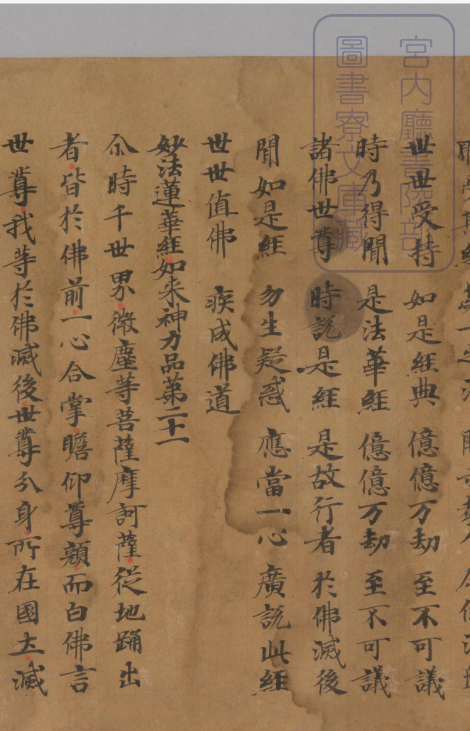 世世受持 如是經典 億億万劫 至不可議
時乃得聞 是法華經 億億万劫 至不可議
諸佛世尊 時說是經 是故行者 於佛滅後
聞如是經 勿生疑惑 應當一心 廣說此經
世世值佛 疾成佛道
妙法蓮華經如来神力品第二十一
尒時千世界微塵等菩薩摩訶薩從地踊出
者皆於佛前一心合掌瞻仰尊顏而白佛言
世尊我等於佛滅後世尊分身所在國土滅
宮内廳書陵部
圖書寮文庫藏